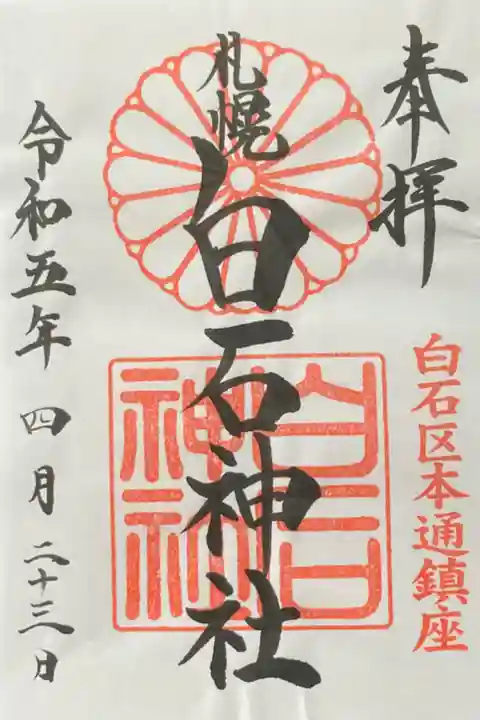 奉拝
白石区本通鎮座
札幌
白石神社
白石
神社
令和五年 四月 二十三日